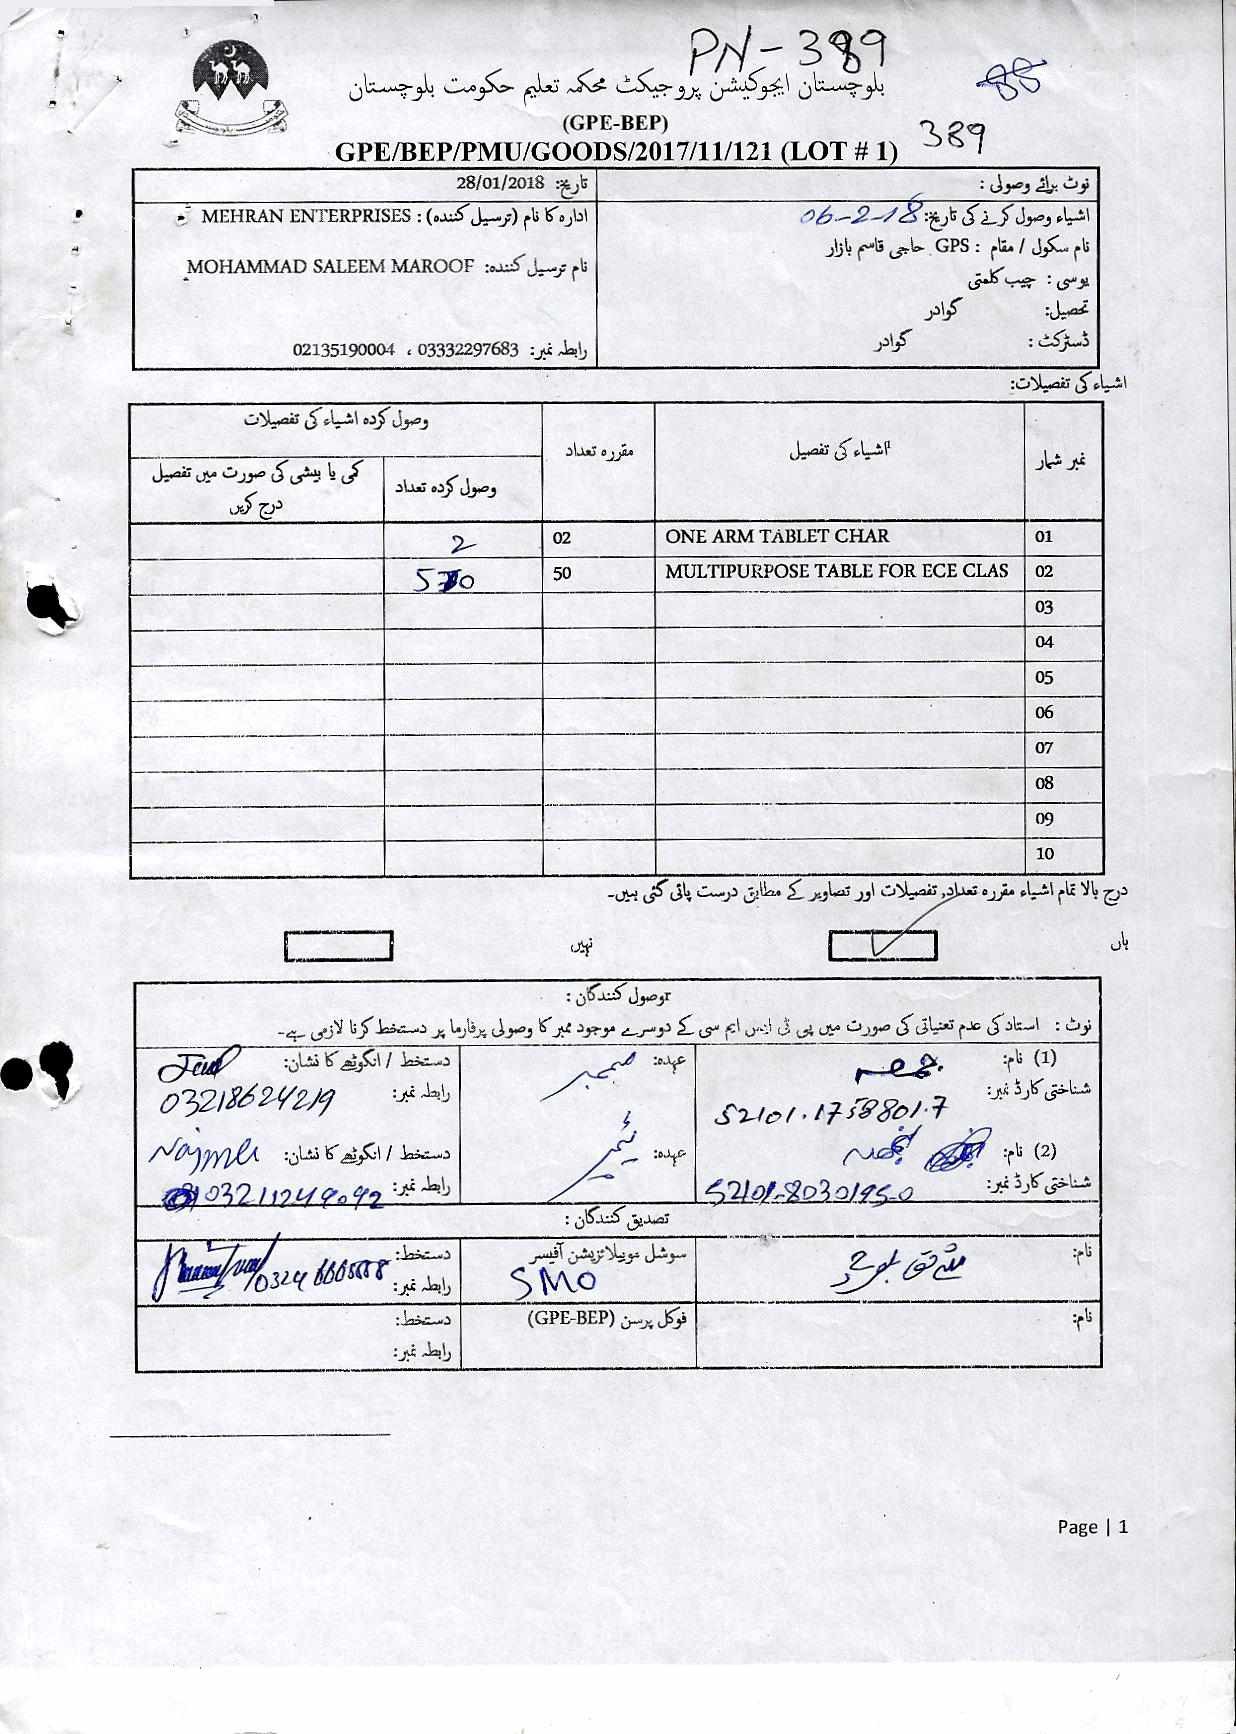 PN-389
88
بلوچستان ایجوکیشن پروجیکٹ محکمہ تعلیم حکومت بلوچستان
(GPE-BEP)
389
GPE/BEP/PMU/GOODS/2017/11/121 (LOT # 1)
نوٹ برائے وصولی :
اشیاء وصول کرنے کی تاریخ: 06-2-18
نام سکول / مقام : GPS حاجی قاسم بازار
یوسی : چیب کلمتی
تحصیل: گوادر
ڈسٹرکٹ : گوادر
تاریخ: 28/01/2018
ادارہ کا نام (ترسیل کنندہ) : MEHRAN ENTERPRISES
نام ترسیل کنندہ: MOHAMMAD SALEEM MAROOF
رابطہ نمبر: 03332297683 ، 02135190004
اشیاء کی تفصیلات:
نمبر شمار اشیاء کی تفصیل مقررہ تعداد وصول کردہ اشیاء کی تفصیلات
وصول کردہ تعداد کمی یا بیشی کی صورت میں تفصیل درج کریں
01 ONE ARM TABLET CHAR 02 2
02 MULTIPURPOSE TABLE FOR ECE CLAS 50
03
04
05
06
07
08
09
10
درج بالا تمام اشیاء مقررہ تعداد, تفصیلات اور تصاویر کے مطابق درست پائی گئی ہیں۔
ہاں نہیں
وصول کنندگان :
نوٹ : استاد کی عدم تعنیاتی کی صورت میں پی ٹی ایس ایم سی کے دوسرے موجود ممبر کا وصولی پرفارما پر دستخط کرنا لازمی ہے۔
(1) نام: عہدہ: ممبر دستخط / انگوٹھے کا نشان:
شناختی کارڈ نمبر: 52101.1758801.7 رابطہ نمبر: 03218624219
(2) نام: نجمہ عہدہ: دستخط / انگوٹھے کا نشان: Najma
شناختی کارڈ نمبر: 52101-8030195-0 رابطہ نمبر: 03211249092
تصدیق کنندگان :
نام: سوشل موبیلائزیشن آفیسر دستخط:
SMO رابطہ نمبر:
نام: فوکل پرسن (GPE-BEP) دستخط:
رابطہ نمبر:
Page | 1